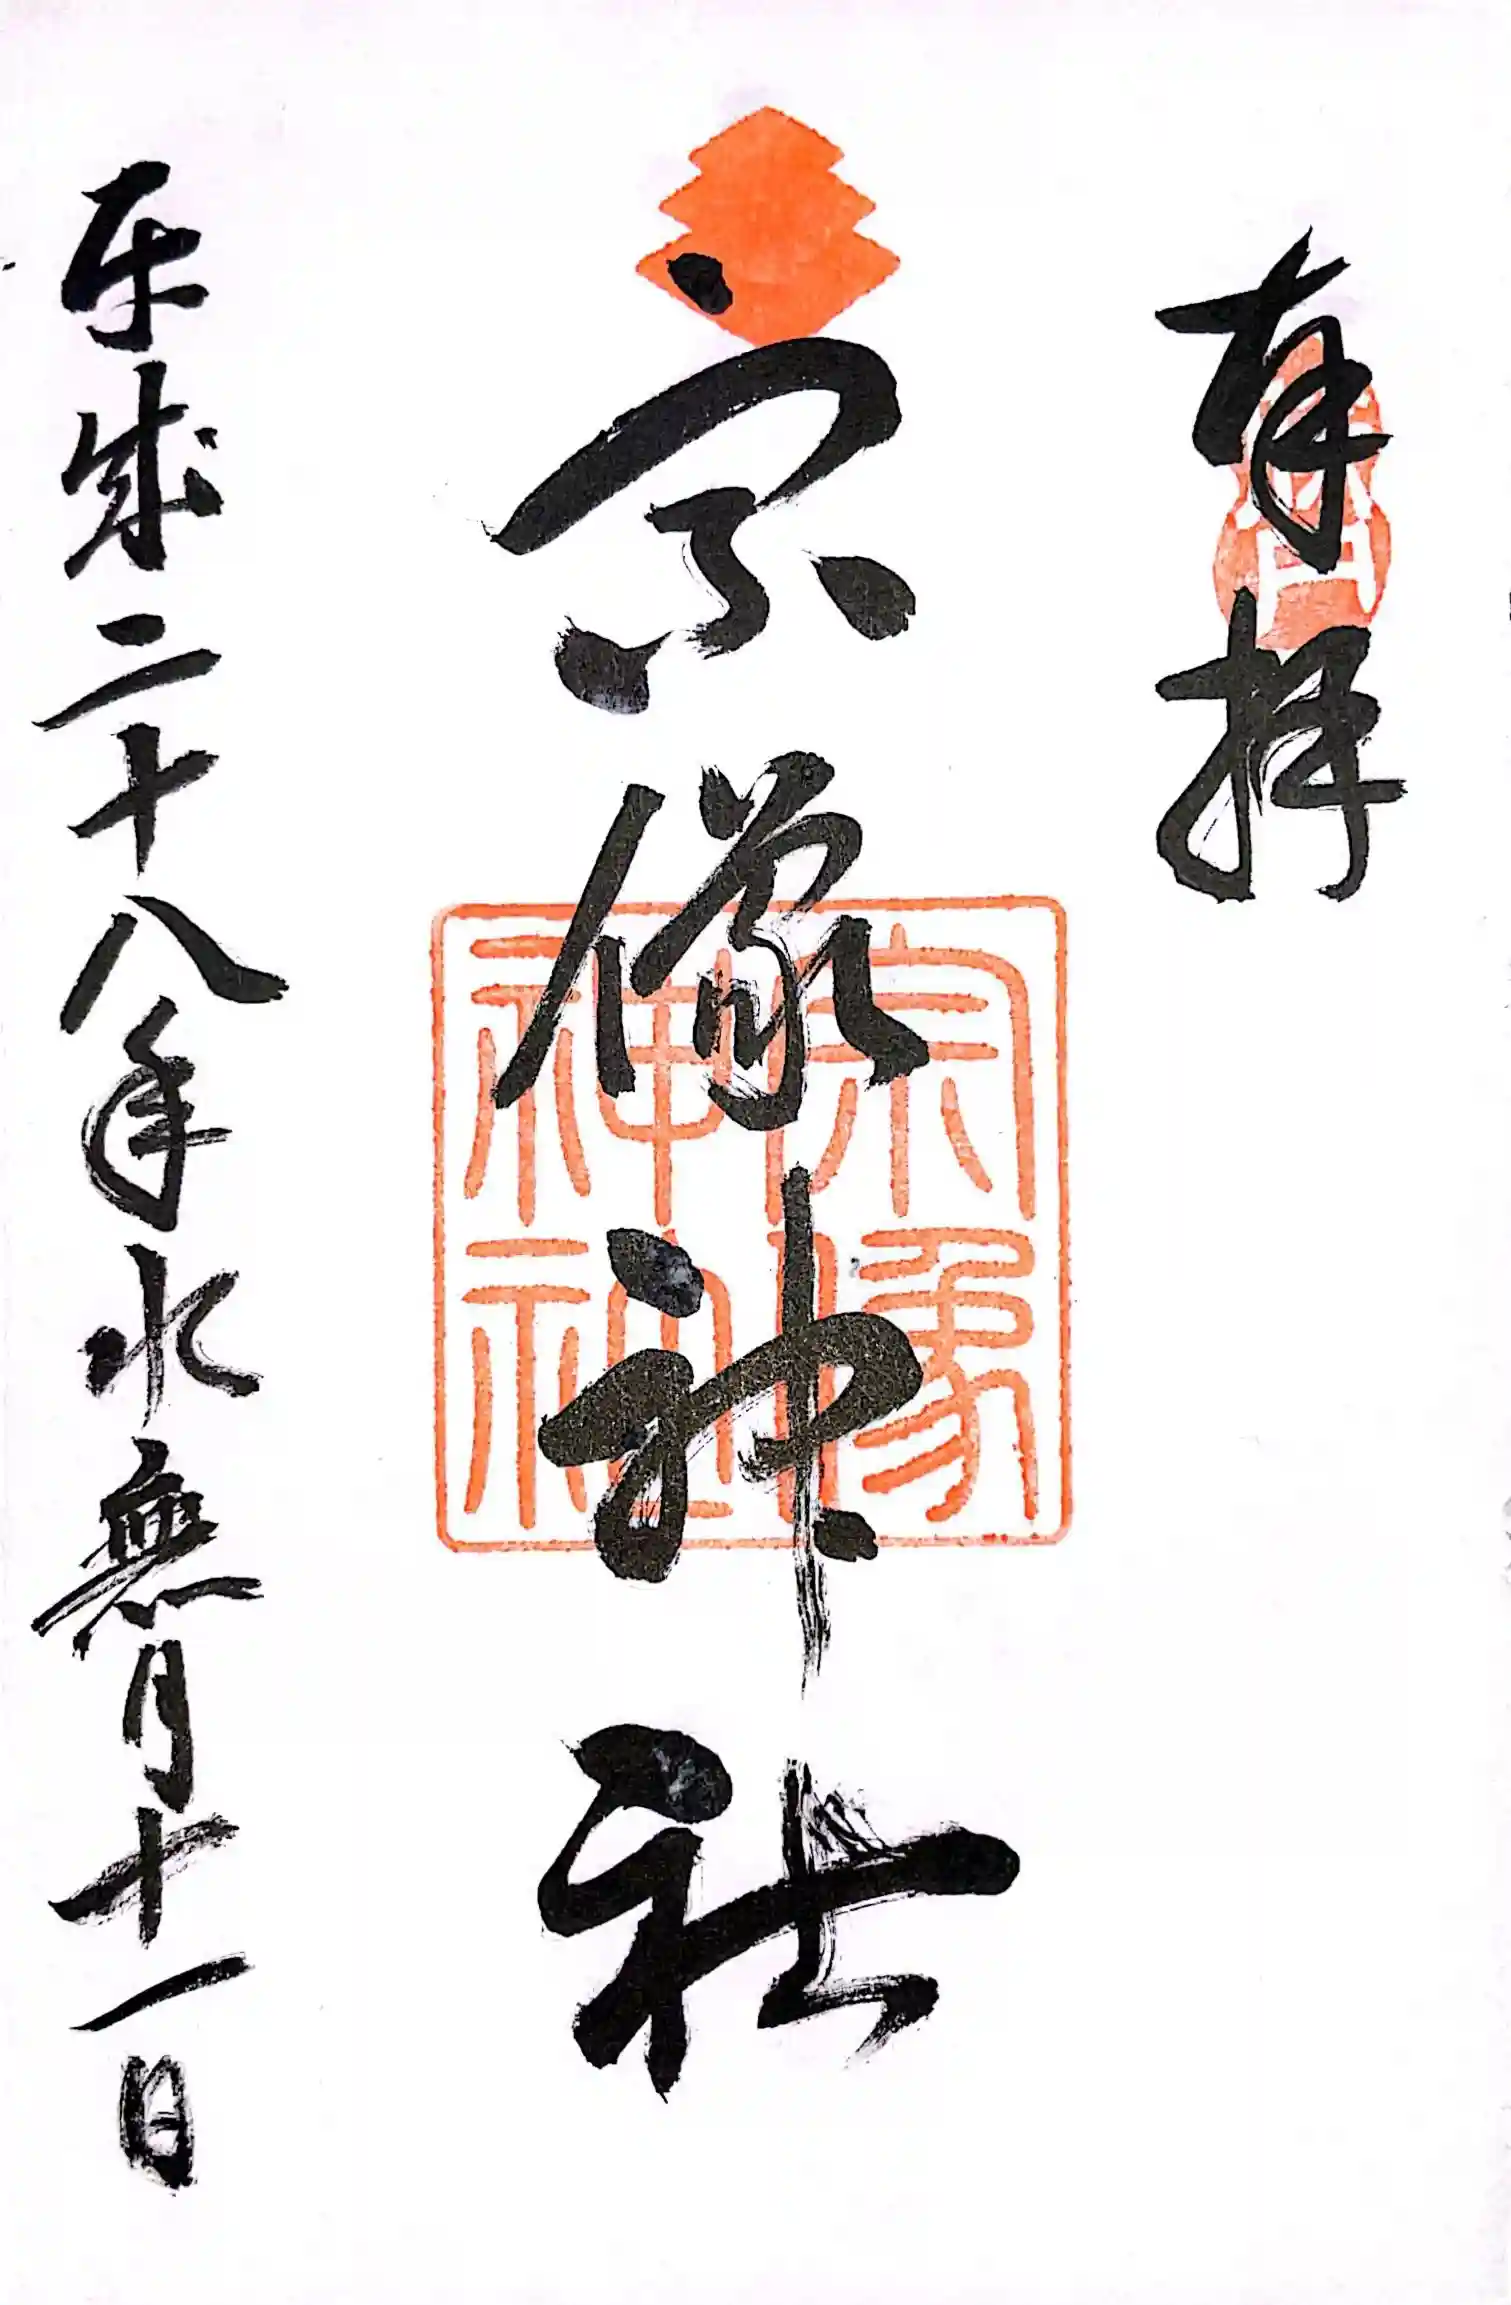 奉拝
宗像神社
宗像
神社
平成二十八年水無月十一日